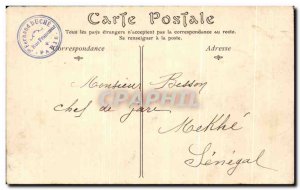 Carte Postale
Tous les pays étrangers n'acceptent pas la correspondance au recto.
Se renseigner à la poste.
Correspondance
Adresse
Monsieur Besson
Chef de gare
Mekhé
Sénégal